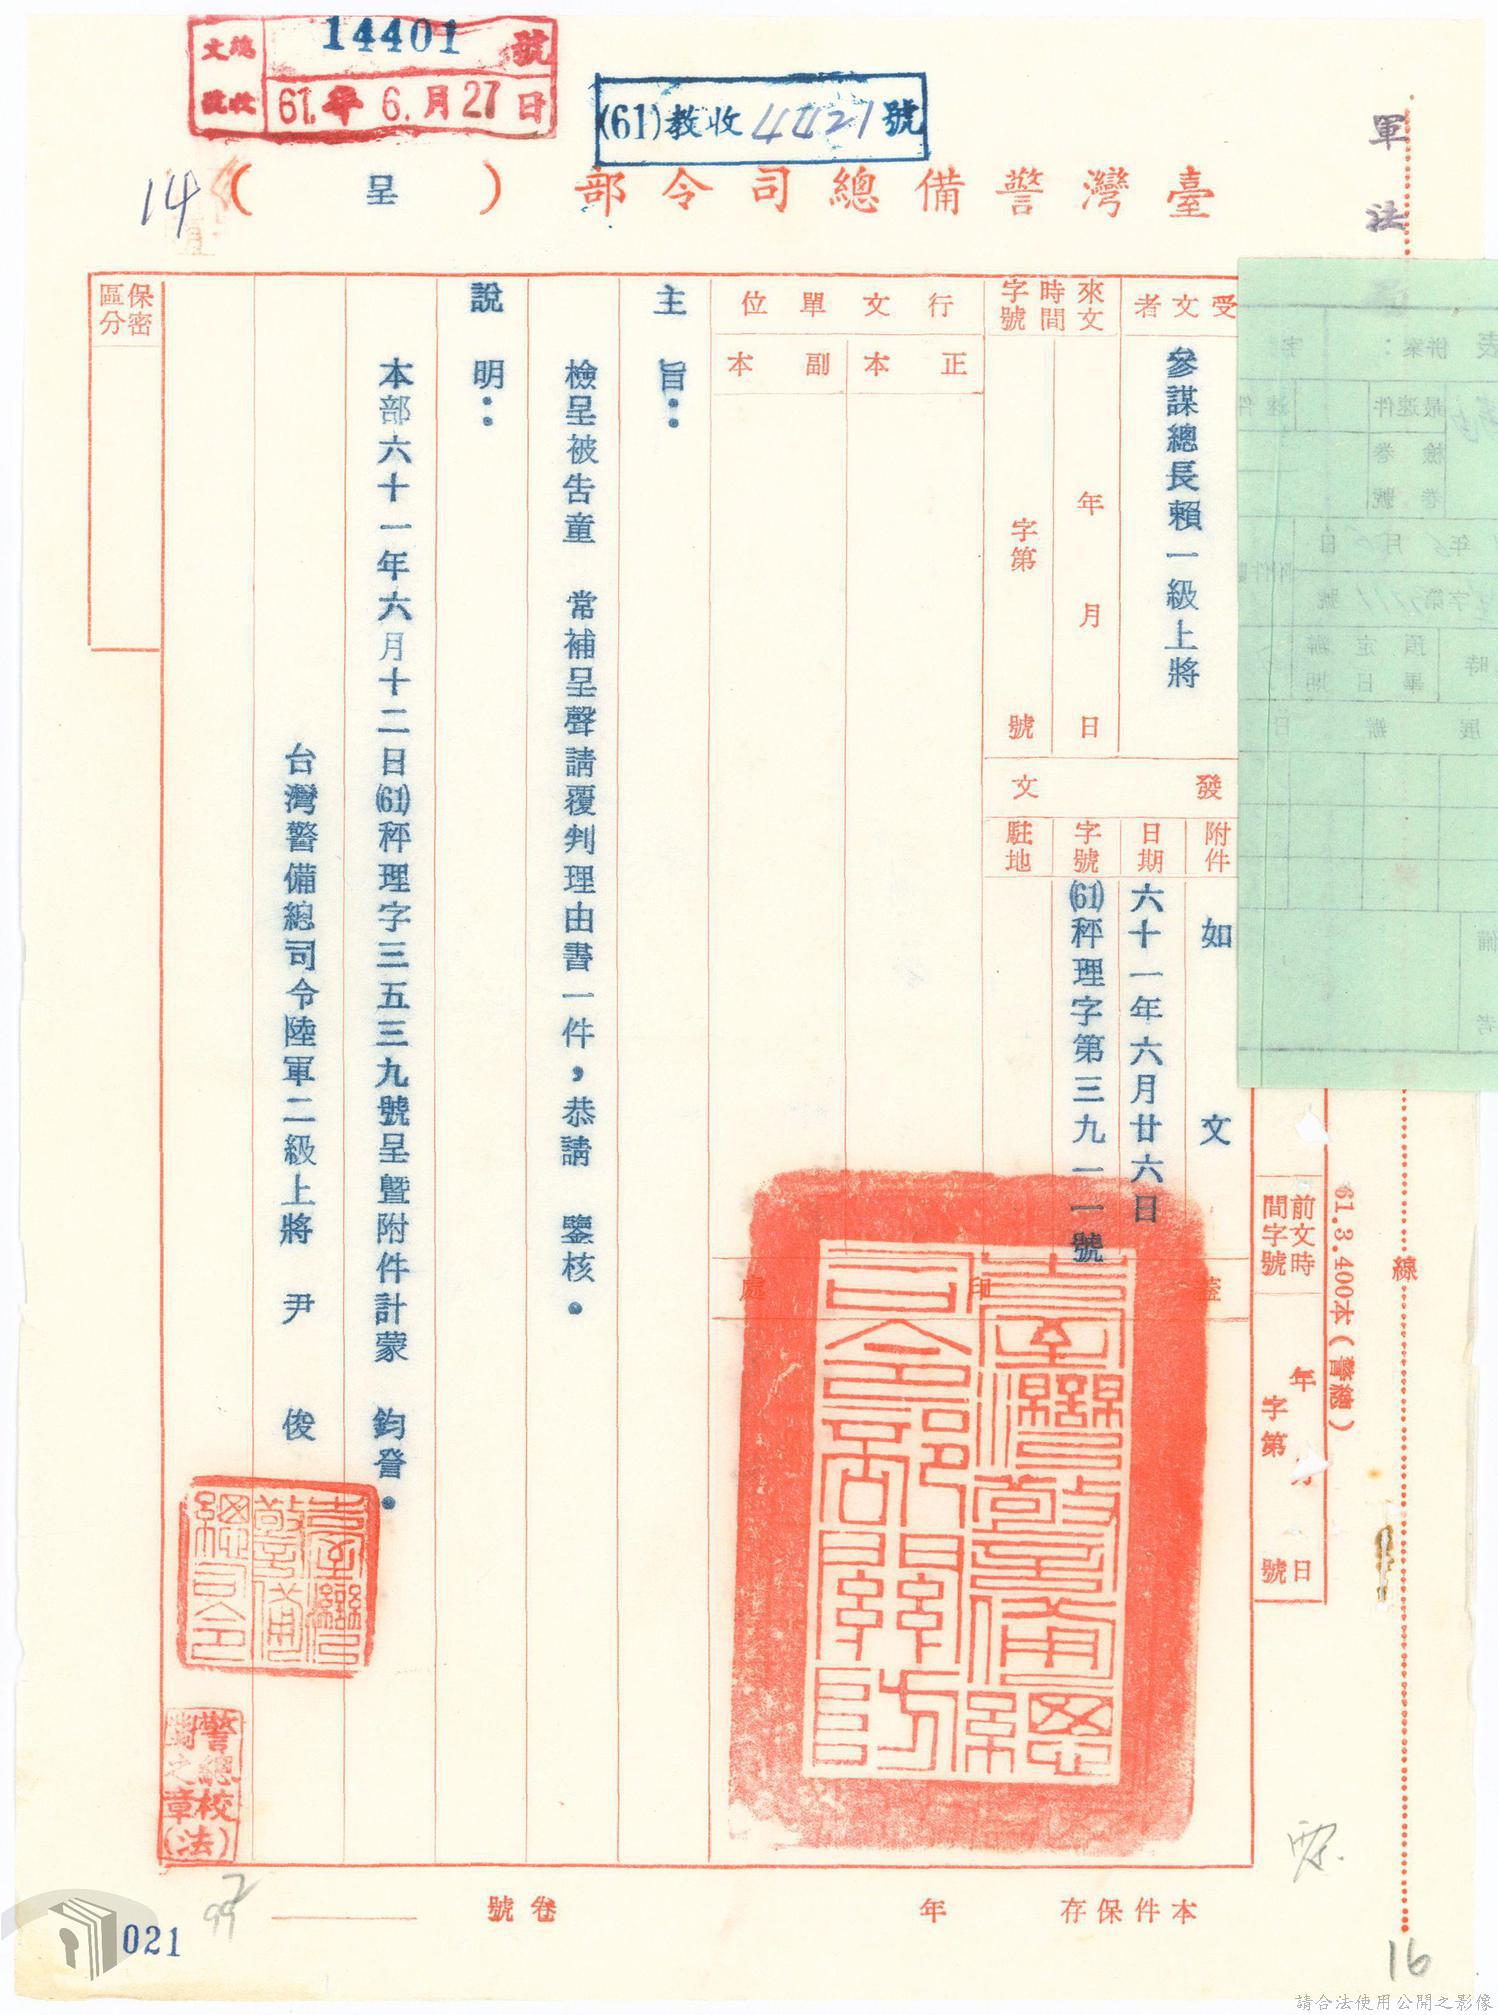 總收文號
14401號
61.年6.月27日
(61)教收4421號
14
臺灣警備總司令部(呈)
軍法
受文者
參謀總長賴一級上將
來文
時間
字號
年月日
字第號
行文單位
正本
副本
發文
附件
如文
日期
六十一年六月廿六日
字號
(61)秤理字第三九一一號
駐地
蓋印處
臺灣警備總司令部關防
主旨：
檢呈被告童　常補呈聲請覆判理由書一件，恭請　鑒核。
說明：
本部六十一年六月十二日(61)秤理字三五三九號呈暨附件計蒙　鈞詧。
台灣警備總司令陸軍二級上將　尹　俊
臺灣警備總司令
保密區分
前文時間字號
年月日
字第號
61.3.400本(警總)
線
本件保存年
卷號
021
16
請合法使用公開之影像